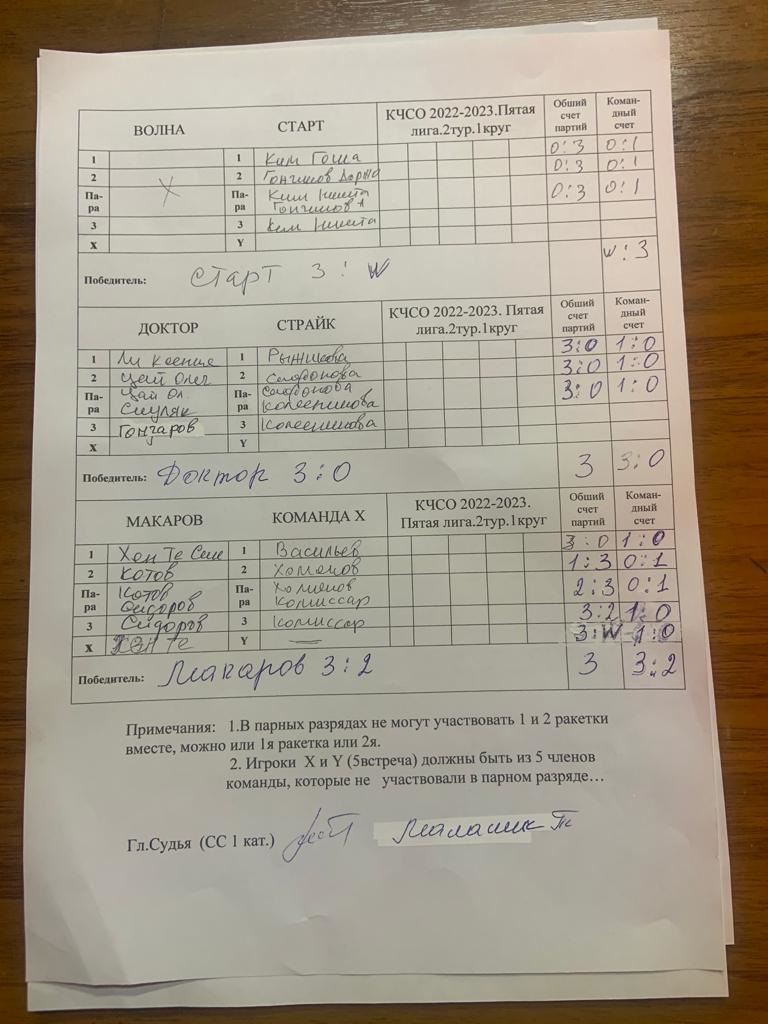 ВОЛНА СТАРТ КЧСО 2022-2023.Пятая лига.2тур.1круг Общий счет партий Коман-дный счет
1 1 Ким Гоша 0:3 0:1
2 2 Гончигов 0:3 0:1
Па-ра X Па-ра Ким Никита Гончигов А 0:3 0:1
3 3 Ким Никита
X Y
Победитель: СТАРТ 3 : W W:3
ДОКТОР СТРАЙК КЧСО 2022-2023. Пятая лига.2тур.1круг Общий счет партий Коман-дный счет
1 Ли Ксения 1 Рыжикова 3:0 1:0
2 Цай Олег 2 3:0 1:0
Па-ра Цай Ол. Смуляк Па-ра Колесникова 3:0 1:0
3 Гончаров 3 Колесникова
X Y
Победитель: Доктор 3:0 3 3:0
МАКАРОВ КОМАНДА X КЧСО 2022-2023. Пятая лига.2тур.1круг Общий счет партий Коман-дный счет
1 Хен Те Сен 1 Васильев 3:0 1:0
2 Котов 2 Хоменов 1:3 0:1
Па-ра Котов Сидоров Па-ра Комиссар 2:3 0:1
3 Сидоров 3 Комиссар 3:2 1:0
X Хен Те Y — 3:W 1:0
Победитель: Макаров 3:2 3 3:2
Примечания: 1.В парных разрядах не могут участвовать 1 и 2 ракетки
вместе, можно или 1я ракетка или 2я.
2. Игроки X и Y (5встреча) должны быть из 5 членов
команды, которые не участвовали в парном разряде…
Гл.Судья (СС 1 кат.) Маламик